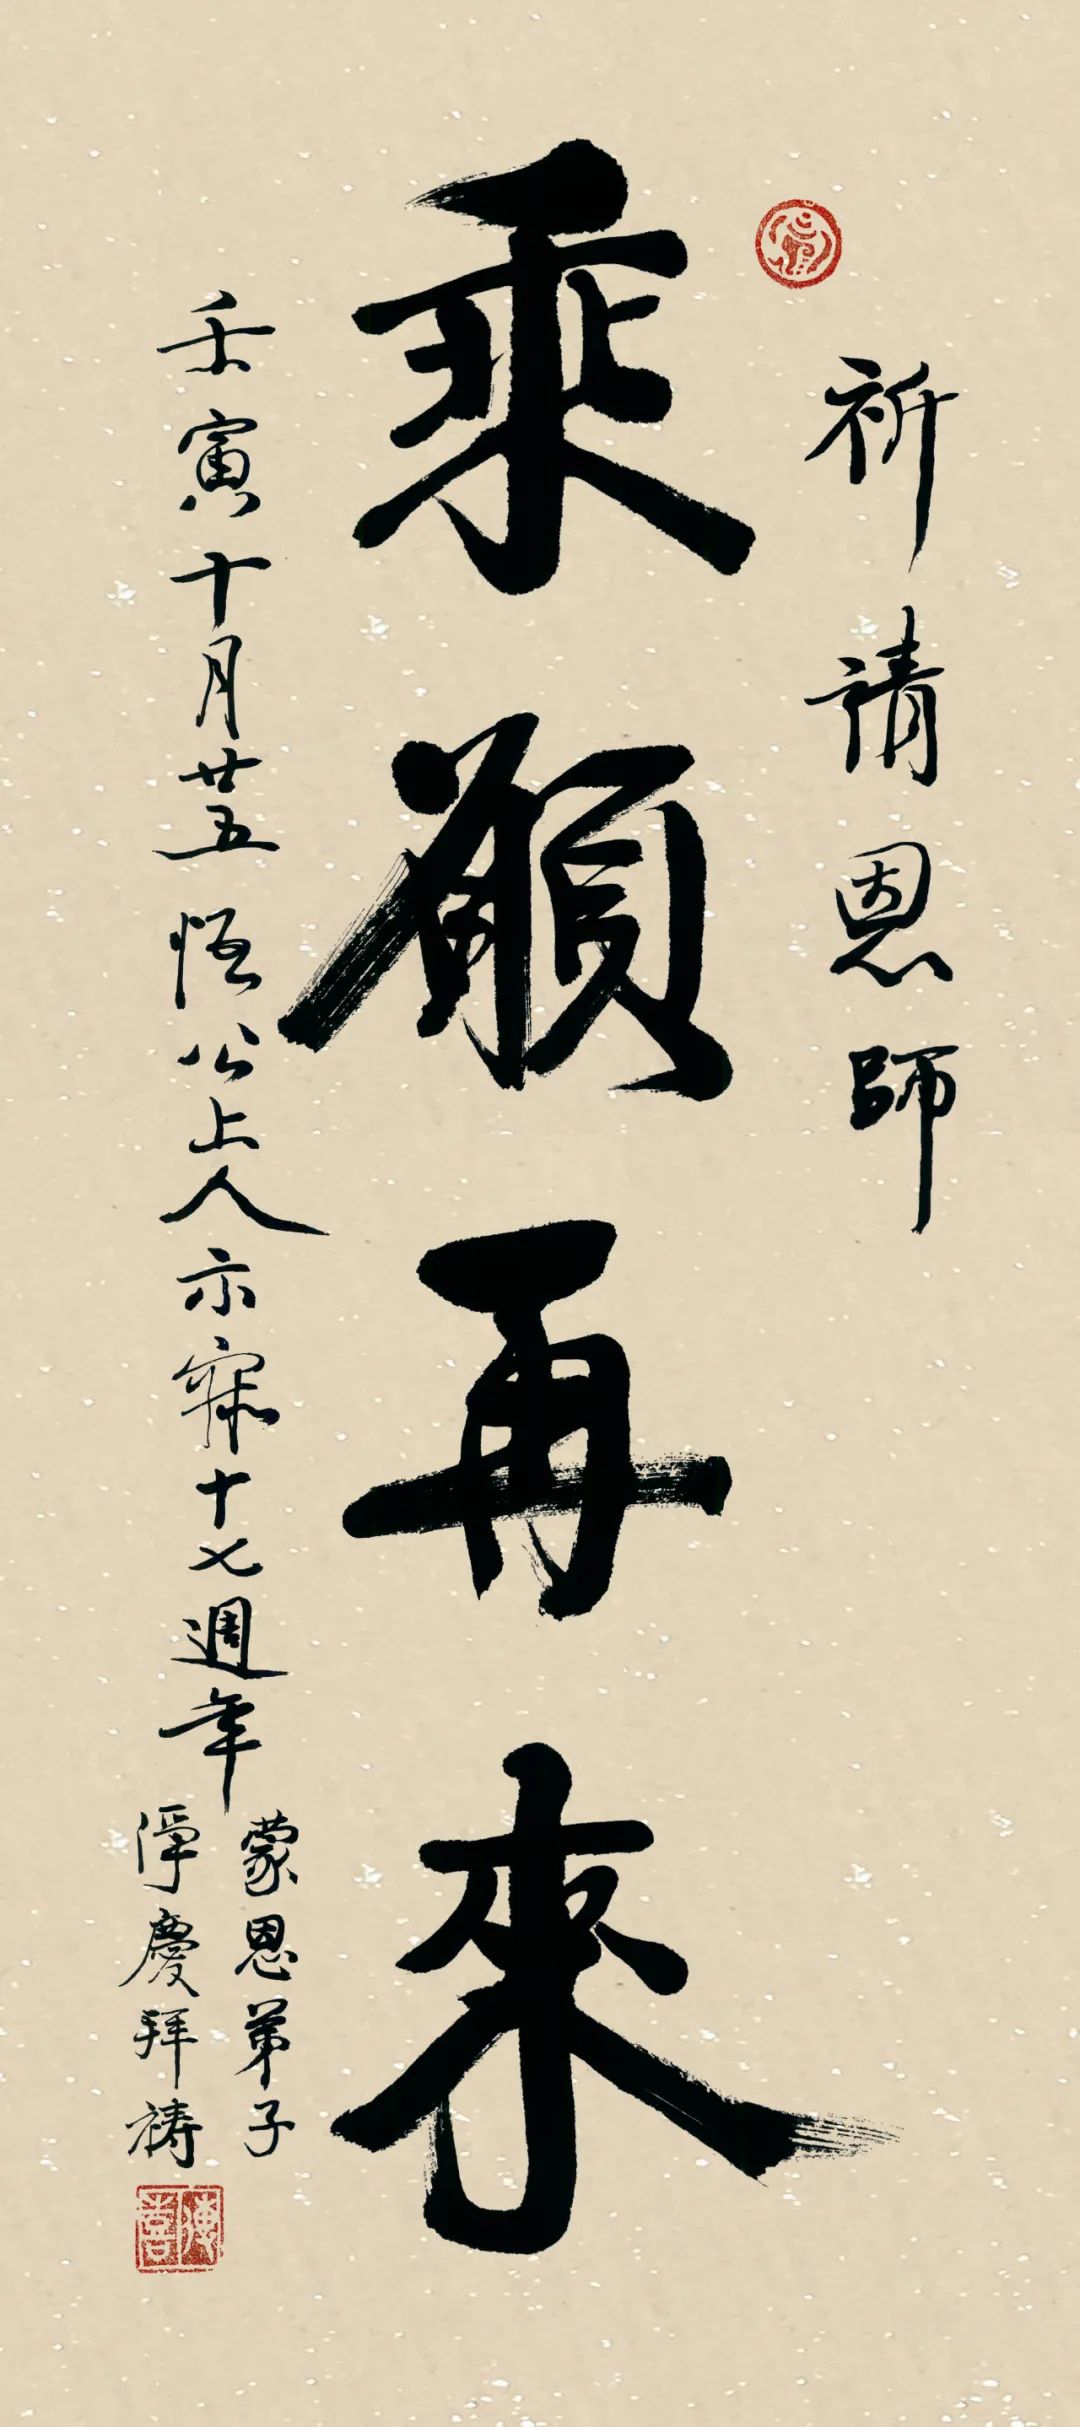 祈請恩師
乘願再來
壬寅十月廿五悟公上人示寂十七週年
蒙恩弟子
淨慶拜禱